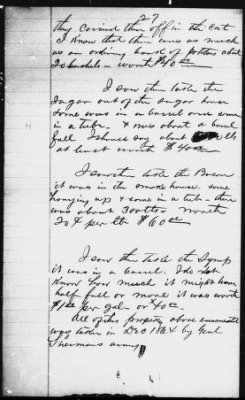 27
they carried them off in the cart
I know that there was as much
as an ordinary bank of potatoes about
20 bushels - worth $10 00
I saw them take the
Sugar out of the Sugar house
Some was in a barrel and some
in a tub. It was about a barrel
full I should say about
at least worth $40 00
I saw them take the Bacon
it was in the smoke house. some
hanging up & come in a tub - there
was about 300 lbs worth
20 ¢ per lb $60 00
I saw them take the Syrup
it was in a barrel. I do not
know how much it might have
half full or more it was worth
$1 00 per gal - or 40 00
All of this property above enumerated
was taken in Dec 1864 by Genl
Shermans army